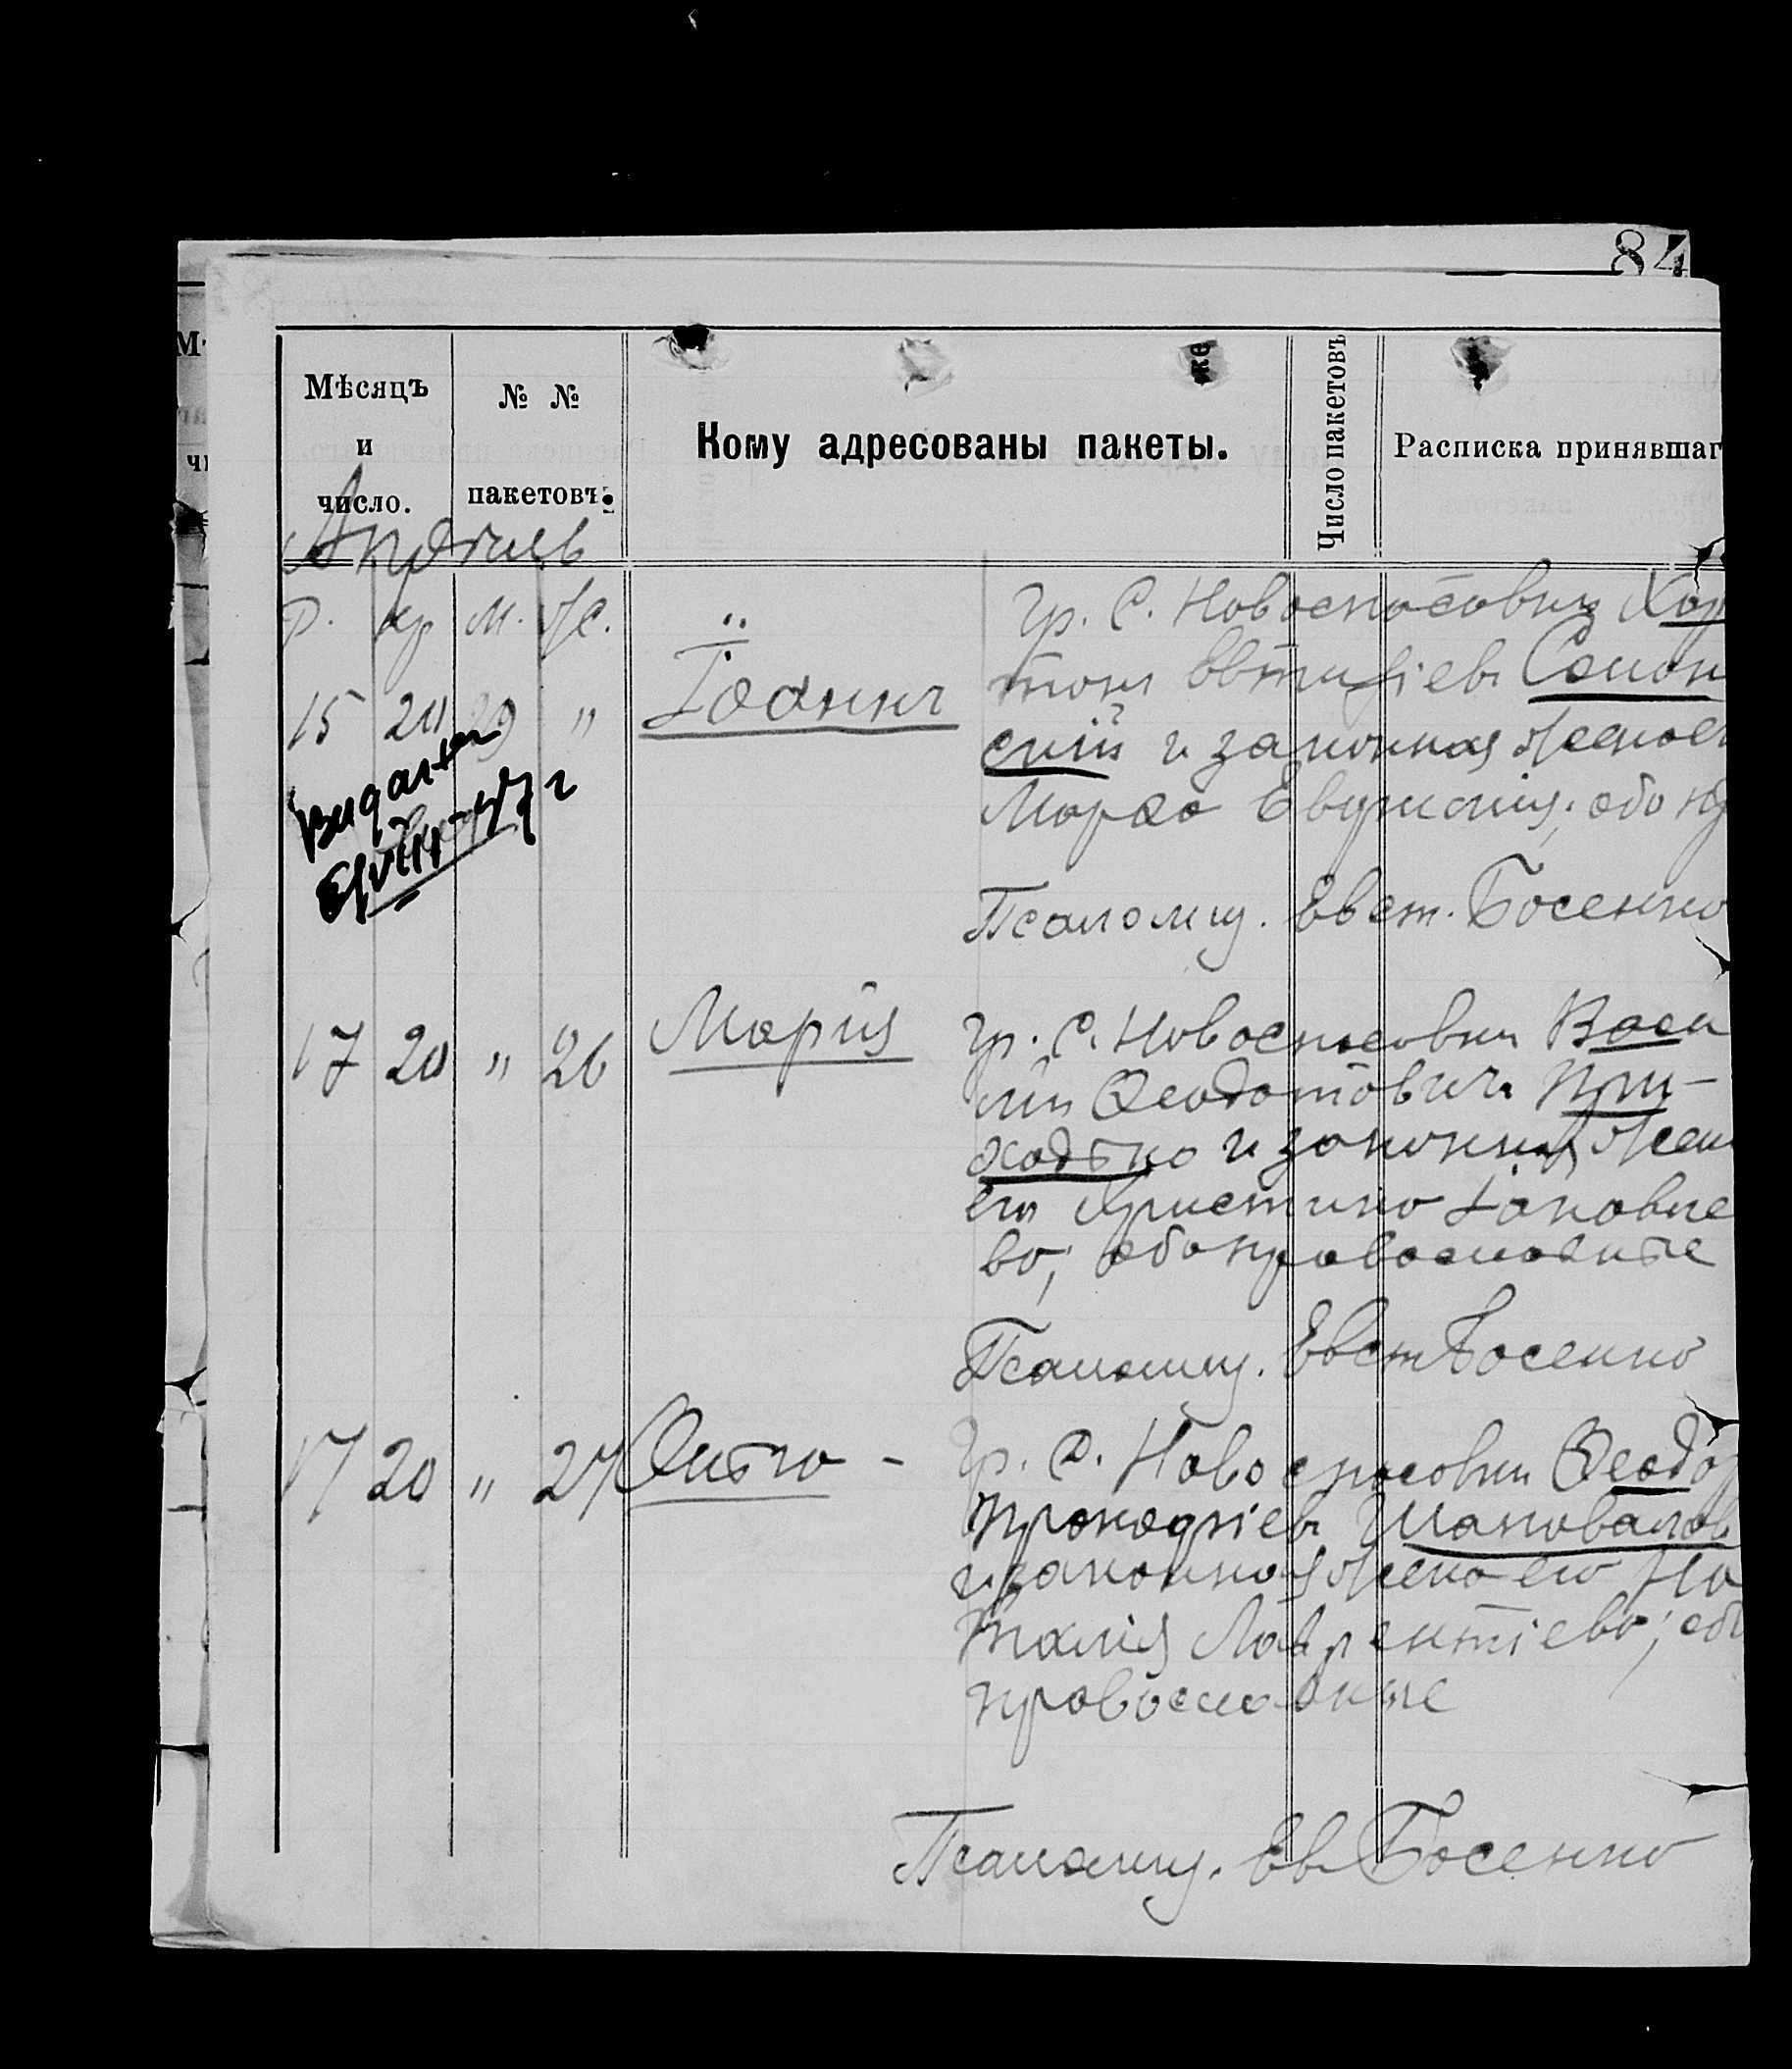 84
Мѣсяцъ и число.
№ № пакетовъ.
Кому адресованы пакеты.
Число пакетовъ
Расписка принявшаг
Апрѣль
Р. Кр М. Ж.
15 20 29 " Іоаннъ
Гр. С. Новоспасовки Хар
тонъ Евтихіевъ Самон
скій и законная жена ег
Марѳа Евѳимія; оба пр
Псаломщ. Евст. Босенко
17 20 " 26 Марія
Гр. С. Новоспасовки Васи
лій Ѳеодотовичъ При-
ходько и законная жен
его Христина Іаковле
ва; оба православные
Псаломщ. Евст Босенко
17 20 " 27
Гр. С. Новоспасовки Ѳеодор
Прокопіевъ Шаповалов
и законная жена его На
талія Лаврентіева; об
православные
Псаломщ. Ев Босенко